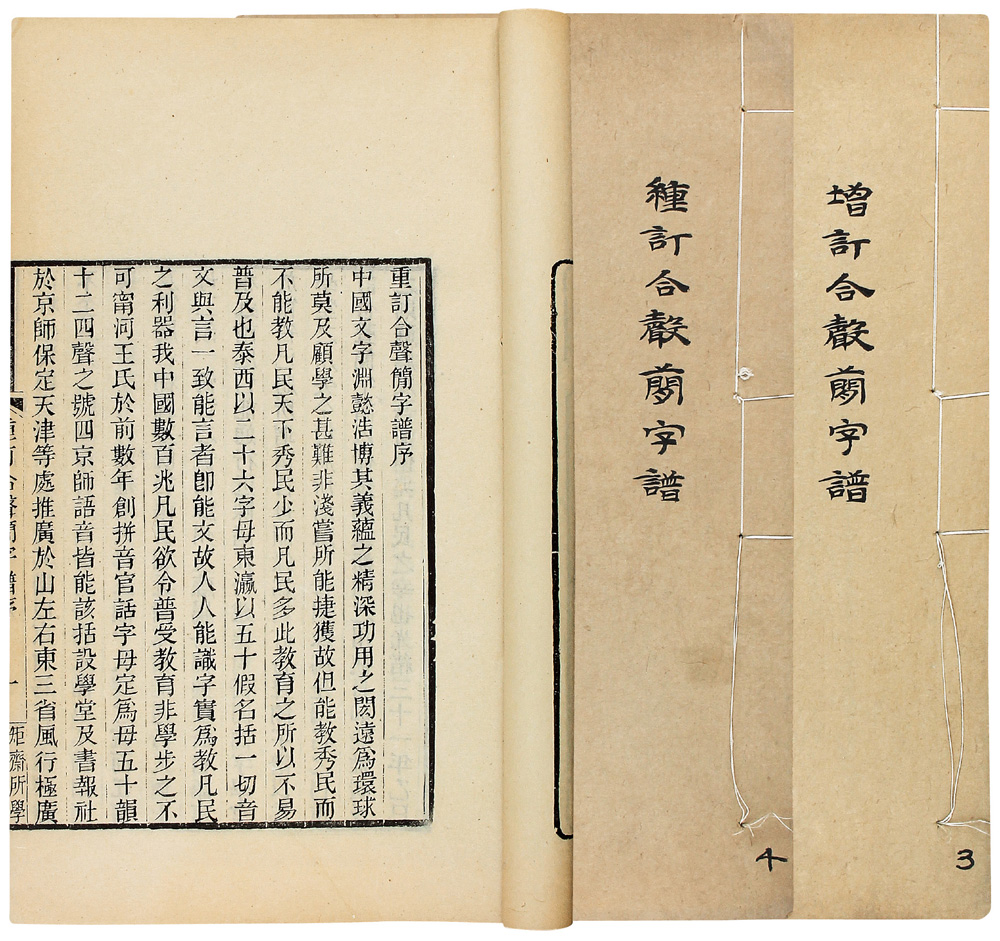 增訂合聲簡字譜
3
緟訂合聲簡字譜
4
重訂合聲簡字譜序
中國文字淵懿浩博其義蘊之精深功用之閎遠爲環球
所莫及顧學之甚難非淺嘗所能捷獲故但能教秀民而
不能教凡民天下秀民少而凡民多此教育之所以不易
普及也泰西以二十六字母東瀛以五十假名括一切音
文與言一致能言者卽能文故人人能識字實爲教凡民
之利器我中國數百兆凡民欲令普受教育非學步之不
可甯河王氏於前數年創拼音官話字母定爲母五十韻
十二四聲之號四京師語音皆能該括設學堂及書報社
於京師保定天津等處推廣於山左右東三省風行極廣
重訂合聲簡字譜序 一 矩齋所學